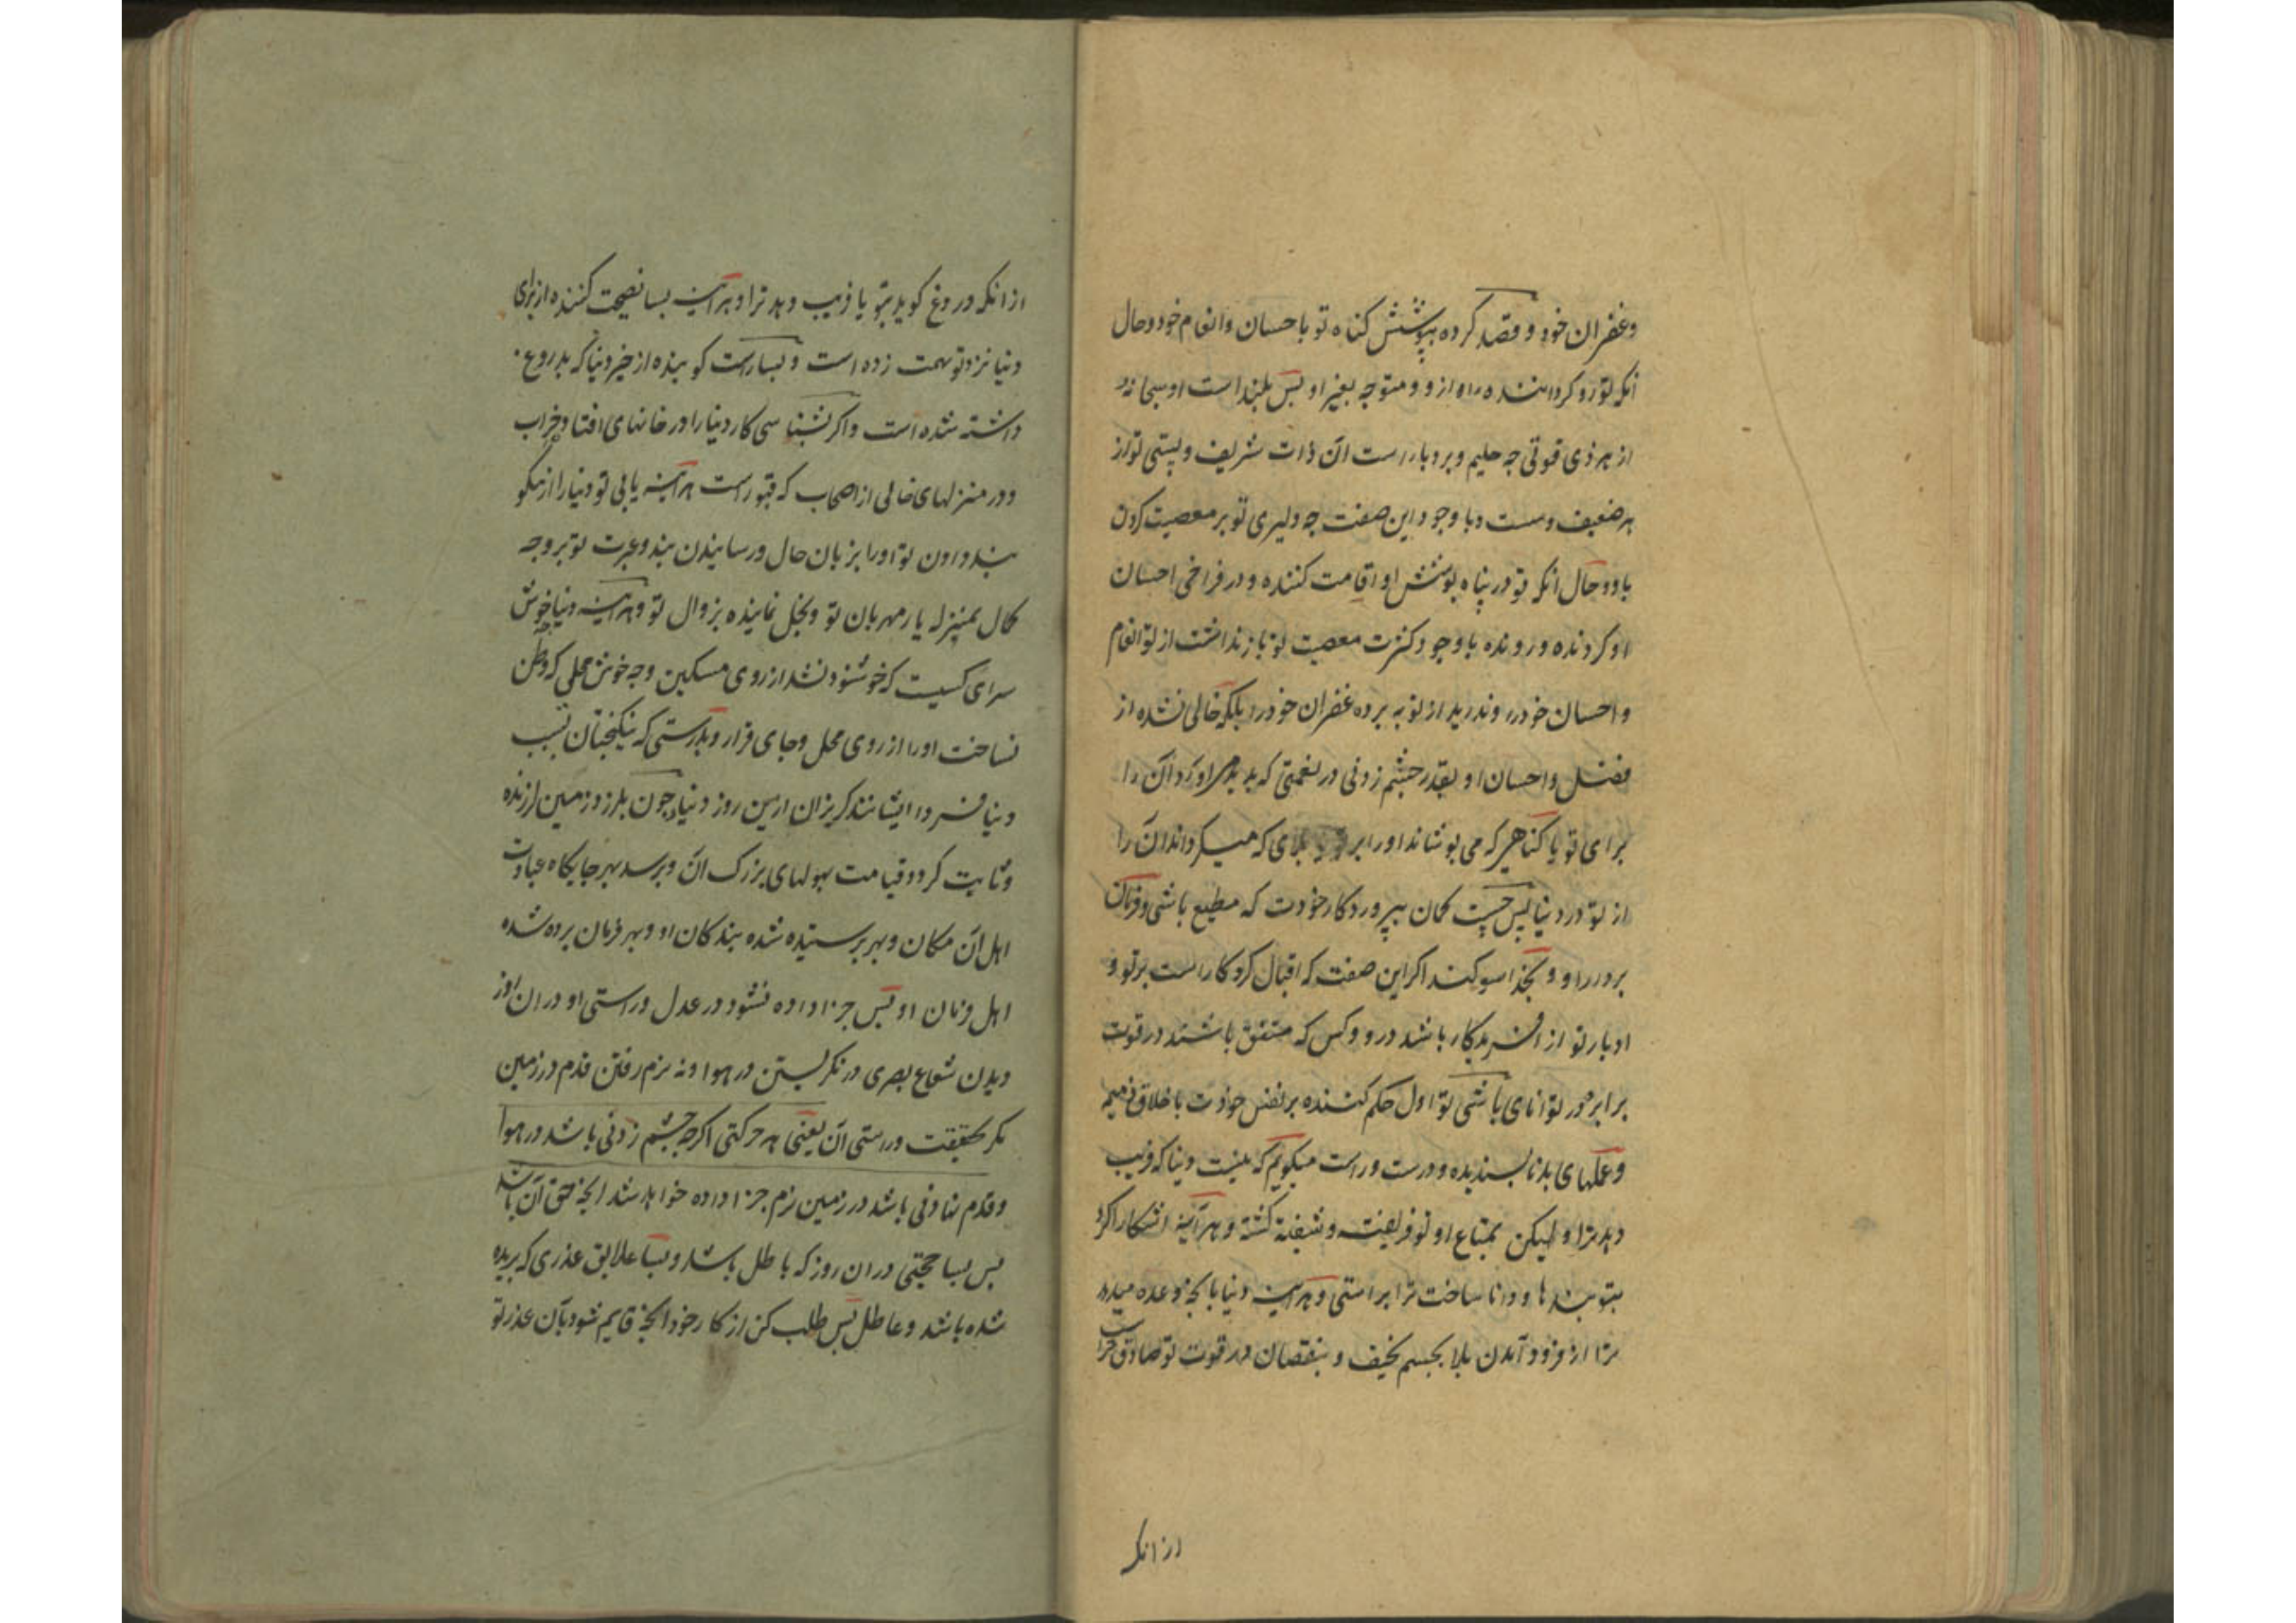 وغفران خود و قصد کرده بپوشش کناه تو با حسان وانعام خود و حال
آنکه تو رو کرداننده راه از و و متوجه بغیر او پس بلند است او سبحانه
از هر ذی قوتی چه حلیم و بردبار است آن ذات شریف و پستی تو از
هر ضعیف و سست و با وجود این صفت چه دلیری تو بر معصیت کردن
باو و حال انکه تو در پناه پوشش او اقامت کننده و در فراخی احسان
او کردنده و رونده با وجود کثرت معصیت تو باز نداشت از تو انعام
و احسان خود را و ندرید از تو به پرده غفران خود را بلکه خالی نشده از
فضل واحسان او بقدر چشم زدنی در نعمتی که پدید اورد آن را
برای تو یا کناهی که می پوشاند او را بر تو بلای که میکرداند آن را
از تو در دنیا پس چیست کمان بپروردکار خودت که مطیع باشی و فرمان
بردار او و بخدا سوکند اکر این صفت که اقبال کردکار است بر تو و
ادبار تو از افریدکار باشد در دو کس که متفق باشند در قوت
برابر در توانای باشی تو اول حکم کننده بر نفس خودت با خلاق ذمیمه
وعملهای بد ناپسندیده و درست و راست میکویم که نیست دنیا که فریب
دهد ترا و لیکن بمتاع او تو فریفته و شیفته کشته و هر آینه اشکارا کرد
بتو پندها و دانا ساخت ترا براستی و هر آینه دنیا بانچه وعده میدهد
ترا از فرود آمدن بلا بجسم نحیف و بنقصان در قوت تو صادق تراست
از انکه
از انکه دروغ کوید بتو یا فریب دهد ترا و هر آینه بسا نصیحت کننده از برای
دنیا نزد تو تهمت زده است و بسا راست کوینده از خیر دنیا که بدروغ
داشته شده است و اکر بشناسی کار دنیا را در خانهای افتاده خراب
و در منزلهای خالی از اصحاب که قبور است هر آینه یابی تو دنیا را از نیکو
پند دادن تو او را بزبان حال و رسانیدن پند و عبرت تو بر وجه
کمال بمنزله یار مهربان تو و بخل نماینده بزوال تو و هر آینه دنیا خوش
سرای کسیست که خوشنود نشد از روی مسکین و چه خوش محلی که وطن
نساخت او را از روی محل و جای قرار و بدرستی که نیکبختان بسبب
دنیا فردا ایشانند کریزان ازین روز دنیا چون بلرزد زمین لرزنده
و ثابت کردد قیامت بهولهای بزرک آن و برسد بهر جایکاه عبادت
اهل آن مکان و بهر پرستیده شده بندکان او و بهر فرمان برده شده
اهل فرمان او پس جزا داده نشود در عدل و راستی او در ان روز
دیدن شعاع بصری در نکریستن در هوا و نه نرم رفتن قدم در زمین
مکر بحقیقت و راستی آن یعنی هر حرکتی اکرچه چشم زدنی باشد در هوا
و قدم نهادنی باشد در زمین نرم جزا داده خواهد شد انچه حق آن باشد
پس بسا حجتی در ان روز که با طل باشد و بسا علایق عذری که بریده
شده باشد و عاطل پس طلب کن از کار خود انچه قایم شود بآن عذر تو